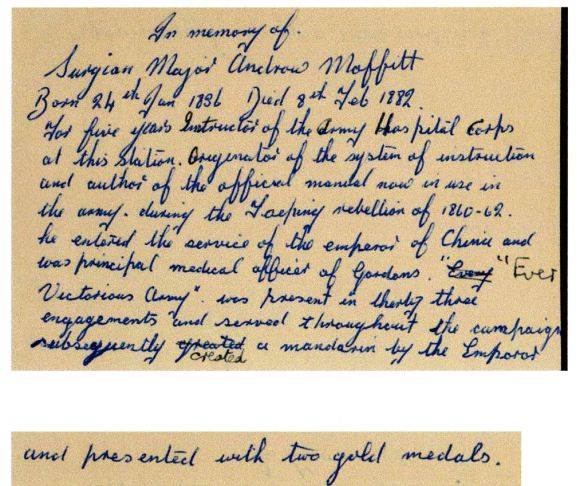 In memory of.
Surgian Major Andrew Moffitt
Born 24th Jan 1836 Died 8th Feb 1882.
For five years Instructor of the Army Hospital Corps
at this station. Originator of the system of instruction
and author of the official manual now in use in
the army. during the Taeping rebellion of 1860-62.
he entered the service of the emperor of China and
was principal medical officer of Gordons. "Every" "Ever
Victorious Army". was present in therty three
engagements and served throughout the campaign
subsequently greated created a mandarin by the Emperor
and presented with two gold medals.